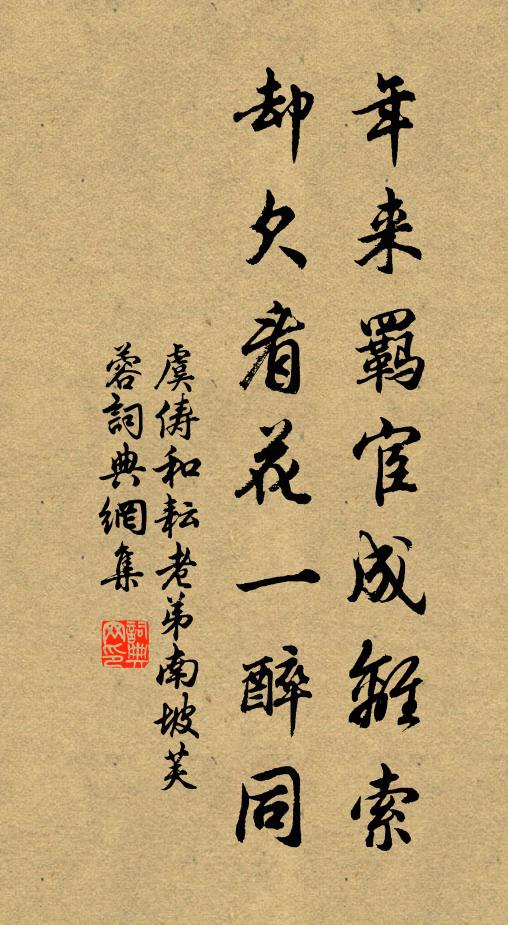 年来羁宦成離索
却欠看花一醉同
虞俦和耘老弟南坡芙
蓉詞典網集
詞典
网印